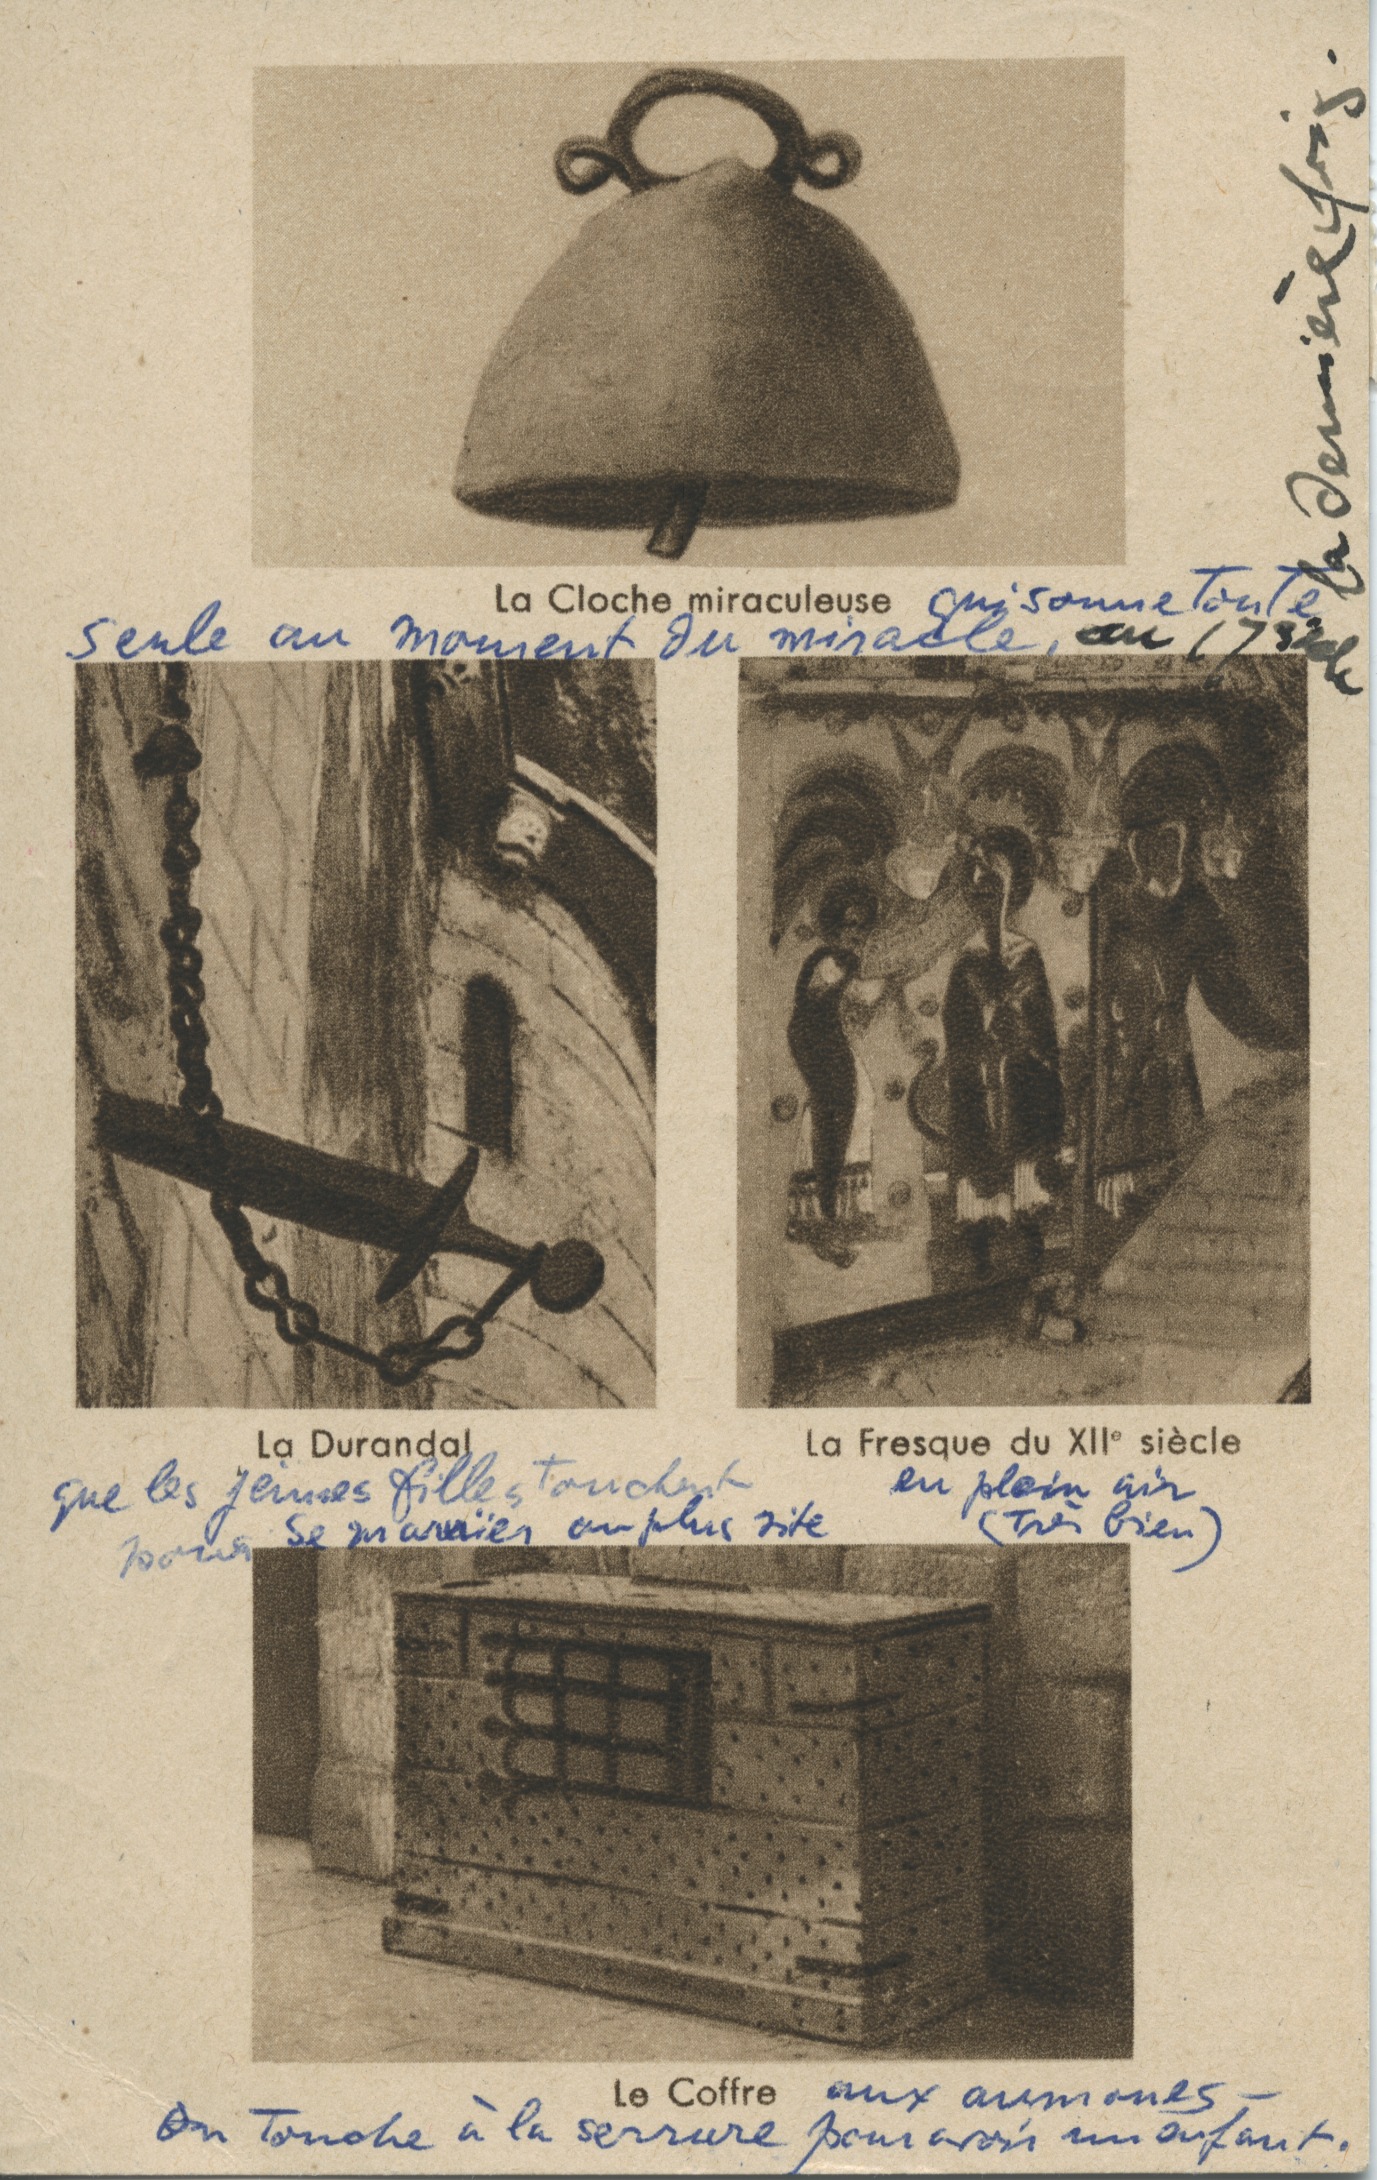 La Cloche miraculeuse qui sonne toute
seule au moment du miracle, au 17 siècle
la dernière fois.
La Durandal
que les jeunes filles touchent
pour se marier au plus vite
La Fresque du XIIe siècle
en plein air
(Très bien)
Le Coffre aux aumones -
On touche à la serrure pour avoir un enfant.